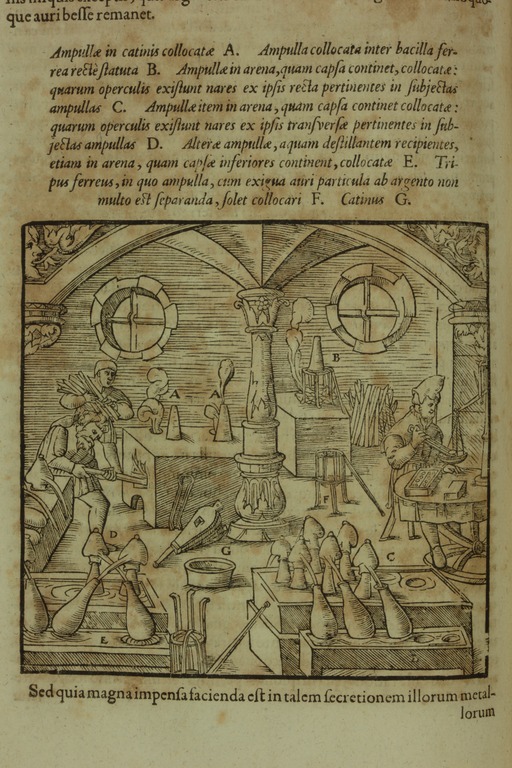 que auri besse remanet.
Ampullæ in catinis collocatæ A. Ampulla collocata inter bacilla fer-
rea rectè statuta B. Ampullæ in arena, quam capsa continet, collocatæ:
quarum operculis existunt nares ex ipsis recta pertinentes in subjectas
ampullas C. Ampullæ item in arena, quam capsa continet collocatæ:
quarum operculis existunt nares ex ipsis transversæ pertinentes in sub-
jectas ampullas D. Alteræ ampullæ, aquam destillantem recipientes,
etiam in arena, quam capsæ inferiores continent, collocatæ E. Tri-
pus ferreus, in quo ampulla, cum exigua auri particula ab argento non
multo est separanda, solet collocari F. Catinus G.
A
A
B
F
D
G
C
E
Sed quia magna impensa facienda est in talem secretionem illorum metal-
lorum